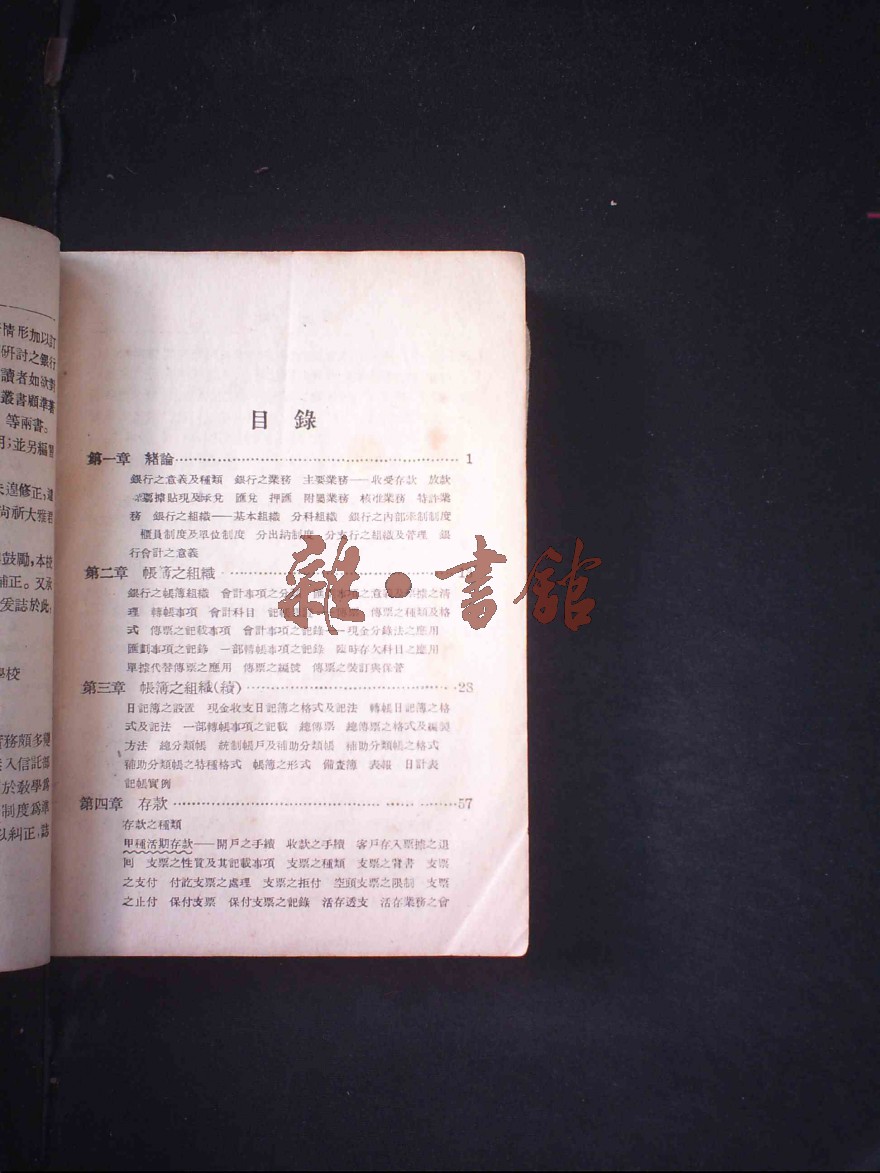 情形加以訂
研討之銀行
讀者如欲對
叢書顧準著
等兩書。
用；並另編實
未遑修正，遺
尚祈大雅君
鼓勵，本校
補正。又承
爰誌於此，
學校
實務頗多變
入信託部
於教學爲
制度爲準
以糾正，誌
目錄
第一章 緒論 1
銀行之意義及種類 銀行之業務 主要業務——收受存款 放款
票據貼現及承兌 匯兌 押匯 附屬業務 核准業務 特許業
務 銀行之組織——基本組織 分科組織 銀行之內部牽制制度
櫃員制度及單位制度 分出納制度 分支行之組織及管理 銀
行會計之意義
第二章 帳簿之組織
銀行之帳簿組織 會計事項之分 之意義及 據之清
理 轉帳事項 會計科目 記 傳票 傳票之種類及格
式 傳票之記載事項 會計事項之記錄——現金分錄法之應用
匯劃事項之記錄 一部轉帳事項之記錄 臨時存欠科目之應用
單據代替傳票之應用 傳票之編號 傳票之裝訂與保管
第三章 帳簿之組織(續) 28
日記簿之設置 現金收支日記簿之格式及記法 轉帳日記簿之格
式及記法 一部轉帳事項之記載 總傳票 總傳票之格式及編製
方法 總分類帳 統制帳戶及補助分類帳 補助分類帳之格式
補助分類帳之特種格式 帳簿之形式 備查簿 表報 日計表
記帳實例
第四章 存款 57
存款之種類
甲種活期存款——開戶之手續 收款之手續 客戶存入票據之退
回 支票之性質及其記載事項 支票之種類 支票之背書 支票
之支付 付訖支票之處理 支票之拒付 空頭支票之限制 支票
之止付 保付支票 保付支票之記錄 活存透支 活存業務之會
雜·書館